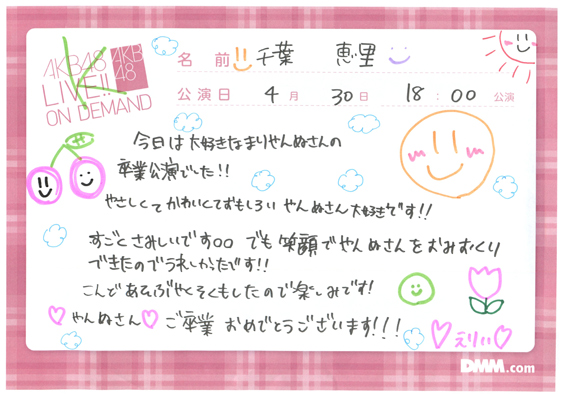 AKB48
LIVE!!
ON DEMAND
AKB
48
名 前 千葉 恵里
公演日 4月 30日 18:00 公演
今日は大好きなまりやんぬさんの
卒業公演でした!!
やさしくてかわいくておもしろい やんぬさん大好きです!!
すごくさみしいです。。 でも笑顔でやんぬさんをおみおくり
できたのでうれしかったです!!
こんどあそぶやくそくもしたので楽しみです!
やんぬさん♡ご卒業 おめでとうございます!!!
♡えりい♡
DMM.com